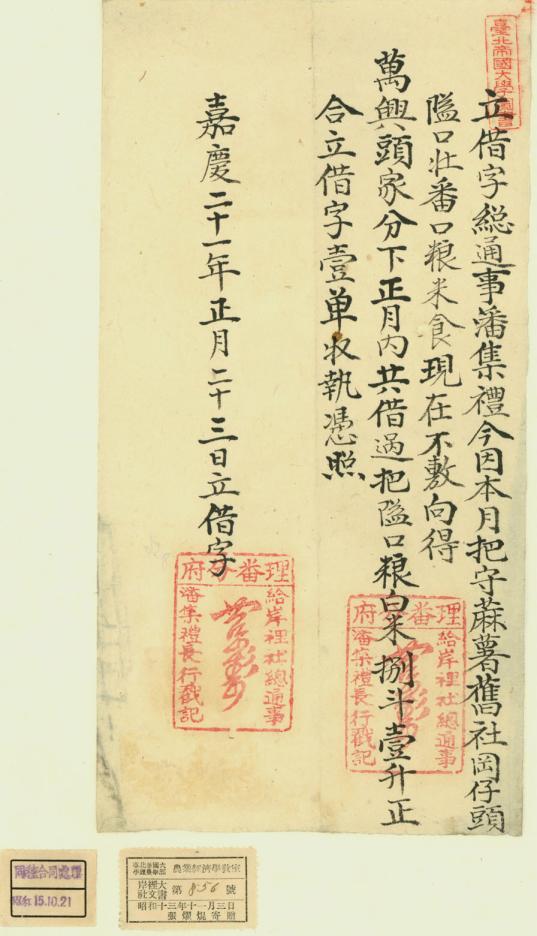 立借字総通事潘集禮今因本月把守蔴薯舊社岡仔頭
隘口壯番口粮米食現在不敷向得
萬興頭家分下正月內共借過把隘口粮白米捌斗壹升正
合立借字壹単收執憑照
嘉慶二十一年正月二十三日立借字
臺北帝國大學圖書
理番分府
給岸裡社總通事
潘集禮長行戳記
理番分府
給岸裡社總通事
潘集禮長行戳記
昭和 15.10.21
臺北帝國大學理農學部 農業經濟學教室
岸裡大社文書 第 856 號
昭和十三年十一月三日
張燿焜寄贈